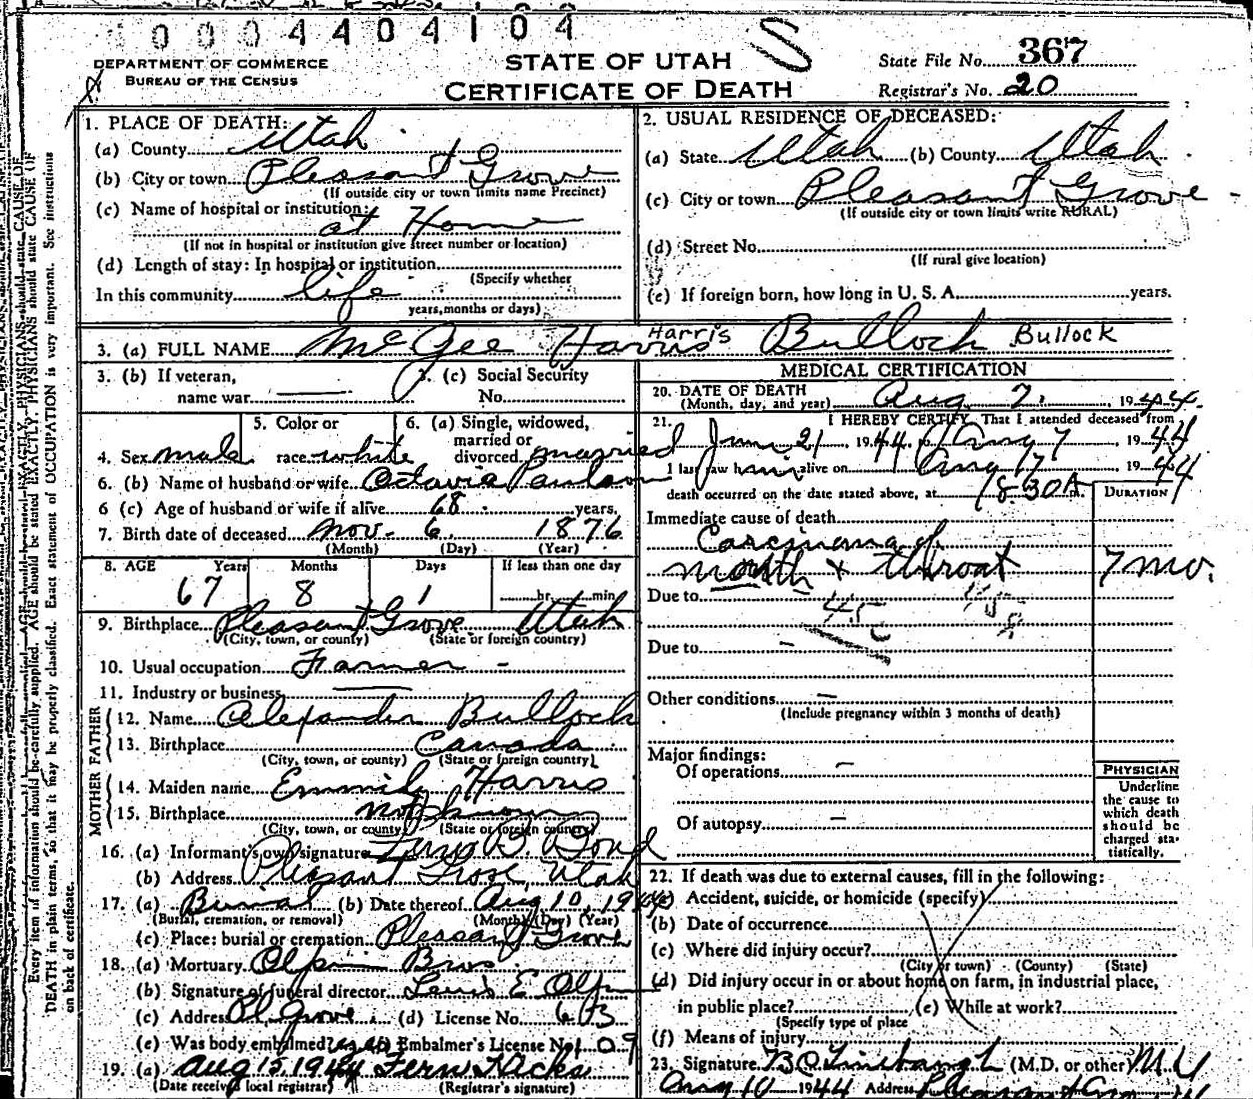 0004404104
DEPARTMENT OF COMMERCE
BUREAU OF THE CENSUS
STATE OF UTAH
CERTIFICATE OF DEATH
State File No. 367
Registrar's No. 20
Every item of information should be carefully supplied. AGE should be stated EXACTLY. PHYSICIANS should state CAUSE OF
DEATH in plain terms, so that it may be properly classified. Exact statement of OCCUPATION is very important. See instructions
on back of certificate.
1. PLACE OF DEATH:
(a) County Utah
(b) City or town Pleasant Grove
(If outside city or town limits name Precinct)
(c) Name of hospital or institution:
at Home
(If not in hospital or institution give street number or location)
(d) Length of stay: In hospital or institution
(Specify whether
In this community life
years, months or days)
2. USUAL RESIDENCE OF DECEASED:
(a) State Utah (b) County Utah
(c) City or town Pleasant Grove
(If outside city or town limits write RURAL)
(d) Street No.
(If rural give location)
(e) If foreign born, how long in U. S. A. years.
3. (a) FULL NAME McGee Harris Harris Bullock Bullock
3. (b) If veteran,
name war
3. (c) Social Security
No.
4. Sex male
5. Color or
race white
6. (a) Single, widowed,
married or
divorced married
6. (b) Name of husband or wife Octavia Paulson
6 (c) Age of husband or wife if alive 68 years.
7. Birth date of deceased Nov. 6, 1876
(Month) (Day) (Year)
8. AGE Years Months Days If less than one day
67 8 1 hr. min.
9. Birthplace Pleasant Grove Utah
(City, town, or county) (State or foreign country)
10. Usual occupation Farmer
11. Industry or business
FATHER
12. Name Alexander Bullock
13. Birthplace Canada
(City, town, or county) (State or foreign country)
MOTHER
14. Maiden name Emmily Harris
15. Birthplace not known
(City, town, or county) (State or foreign country)
16. (a) Informant's own signature B.
(b) Address Pleasant Grove, Utah
17. (a) Burial (b) Date thereof Aug 10, 1944
(Burial, cremation, or removal) (Month) (Day) (Year)
(c) Place: burial or cremation Pleasant Grove
18. (a) Mortuary Olpin Bros
(b) Signature of funeral director Louis E Olpin
(c) Address Pl Grove (d) License No. 603
(e) Was body embalmed? yes (f) Embalmer's License No. 109
19. (a) Aug 15, 1944 Fern Hicks
(Date received local registrar) (Registrar's signature)
MEDICAL CERTIFICATION
20. DATE OF DEATH
(Month, day, and year) Aug 7, 1944.
21. I HEREBY CERTIFY, That I attended deceased from
21 1944, to Aug 7 1944
I last saw him alive on Aug 1944
death occurred on the date stated above, at 830 A m.
DURATION
Immediate cause of death
Carcinoma of
mouth + throat 7 mo.
Due to
45c
Due to
Other conditions
(Include pregnancy within 3 months of death)
Major findings:
Of operations
Of autopsy
PHYSICIAN
Underline
the cause to
which death
should be
charged sta-
tistically.
22. If death was due to external causes, fill in the following:
(a) Accident, suicide, or homicide (specify)
(b) Date of occurrence
(c) Where did injury occur?
(City or town) (County) (State)
(d) Did injury occur in or about home on farm, in industrial place,
in public place? (e) While at work?
(Specify type of place
(f) Means of injury
23. Signature (M.D. or other)
Aug 10 1944 Address